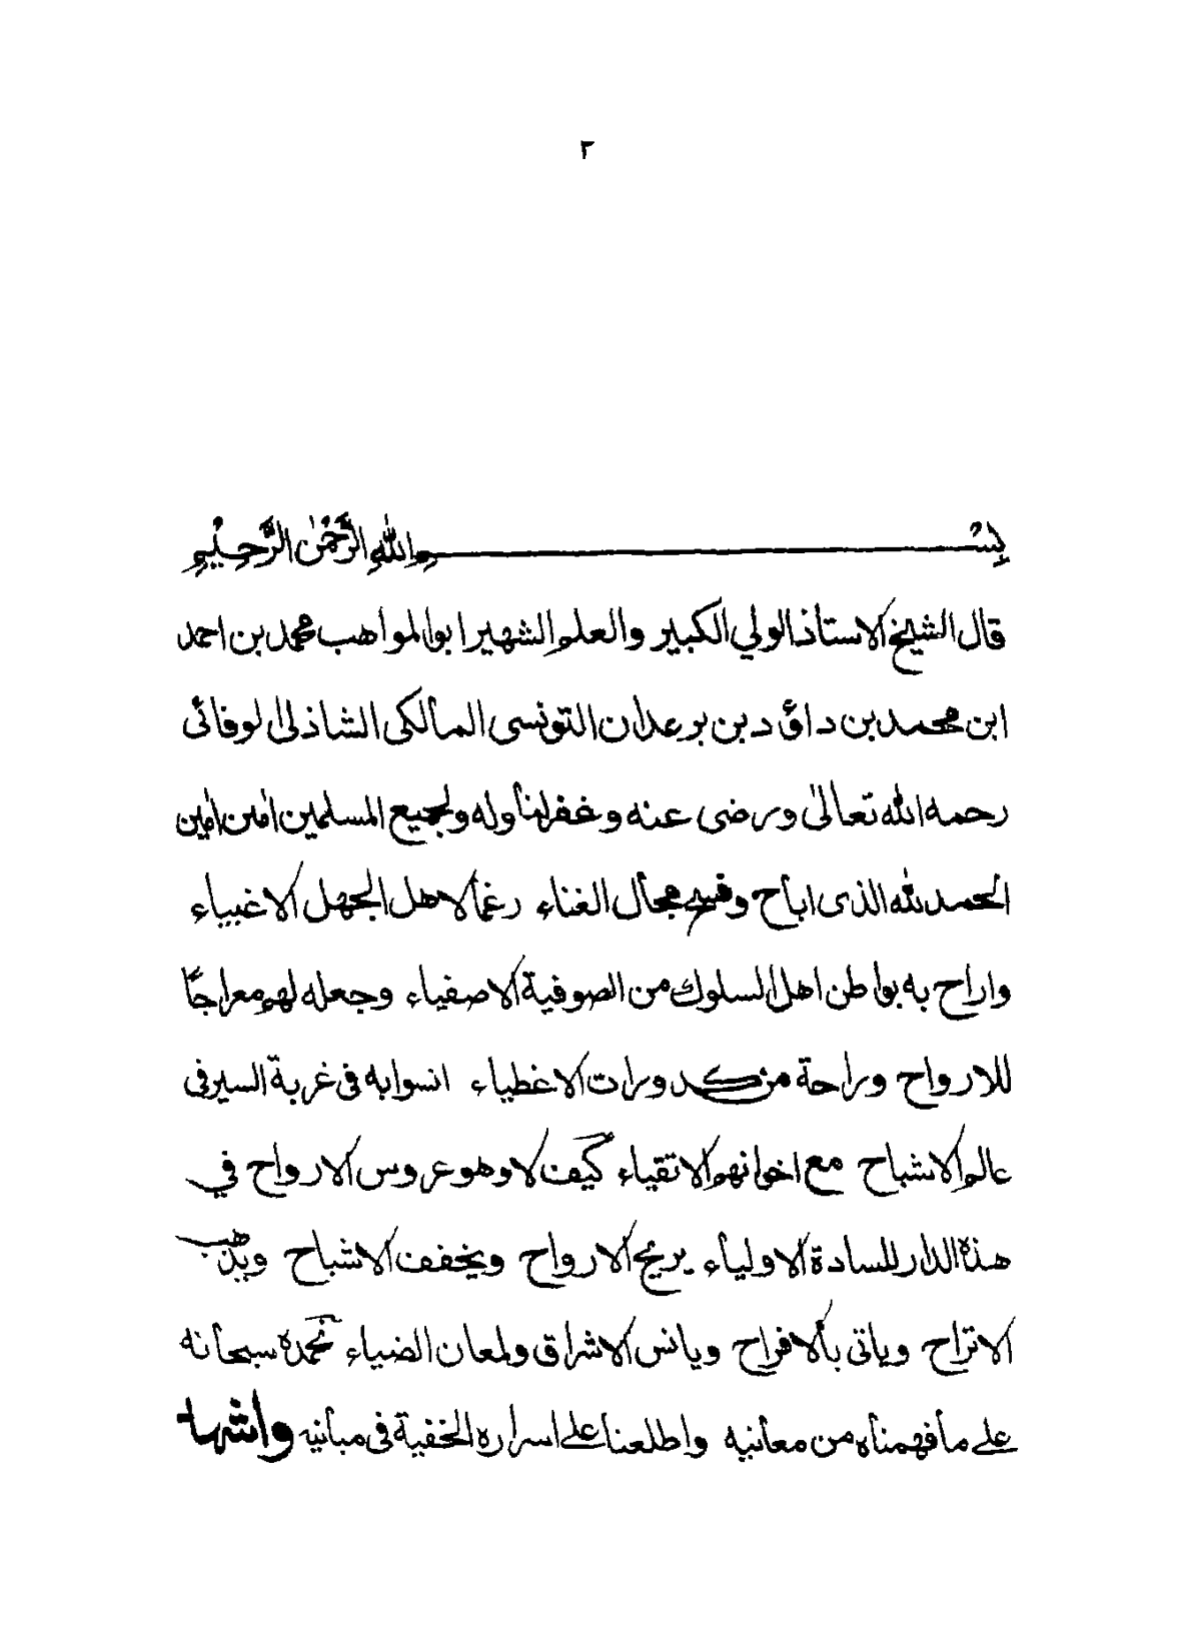 ٢
بِسْمِ اللهِ الرَّحْمٰنِ الرَّحِيْمِ
قال الشيخ الاستاذ الولي الكبير والعلم الشهير ابو المواهب محمد بن احمد
ابن محمد بن داؤد بن برعدان التونسى المالكى الشاذلى الوفائى
رحمه الله تعالىٰ ورضى عنه وغفر لنا وله ولجميع المسلمين اٰمين اٰمين
الحمد لله الذى اباح وفسح مجال الغناء رغما لاهل الجهل الاغبياء
واراح به بواطن اهل السلوك من الصوفية الاصفياء وجعله لهم معراجًا
للارواح وراحة من كدورات الاغطياء انسوابه فى غربة السير فى
عالم الاشباح مع اخوانهم الاتقياء كيف لا وهو عروس الارواح في
هذة الدار للسادة الاولياء يريح الارواح ويخفف الاشباح ويذهب
الاتراح وياتى بالافراح ويانس الاشراق ولمعان الضياء نحمدة سبحانه
على ما فهمناه من معانيه واطلعنا على اسراره الخفية فى مبانيه واشها